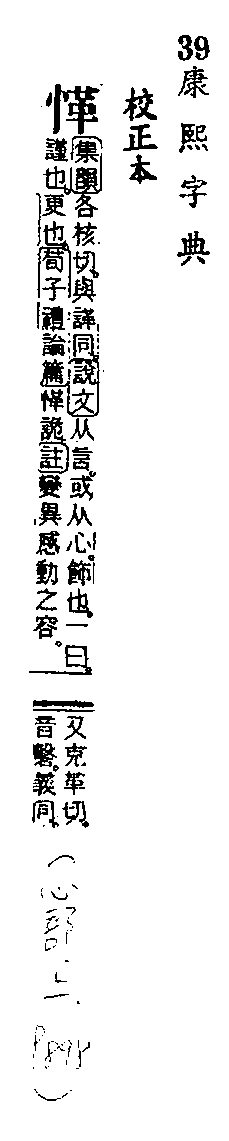 39康熙字典
校正本
愅
集韻各核切與諽同說文从言或从心飾也一曰
謹也更也荀子禮論篇愅詭註變異感動之容。
又克革切。
音礊義同。
(心部.六.P898)